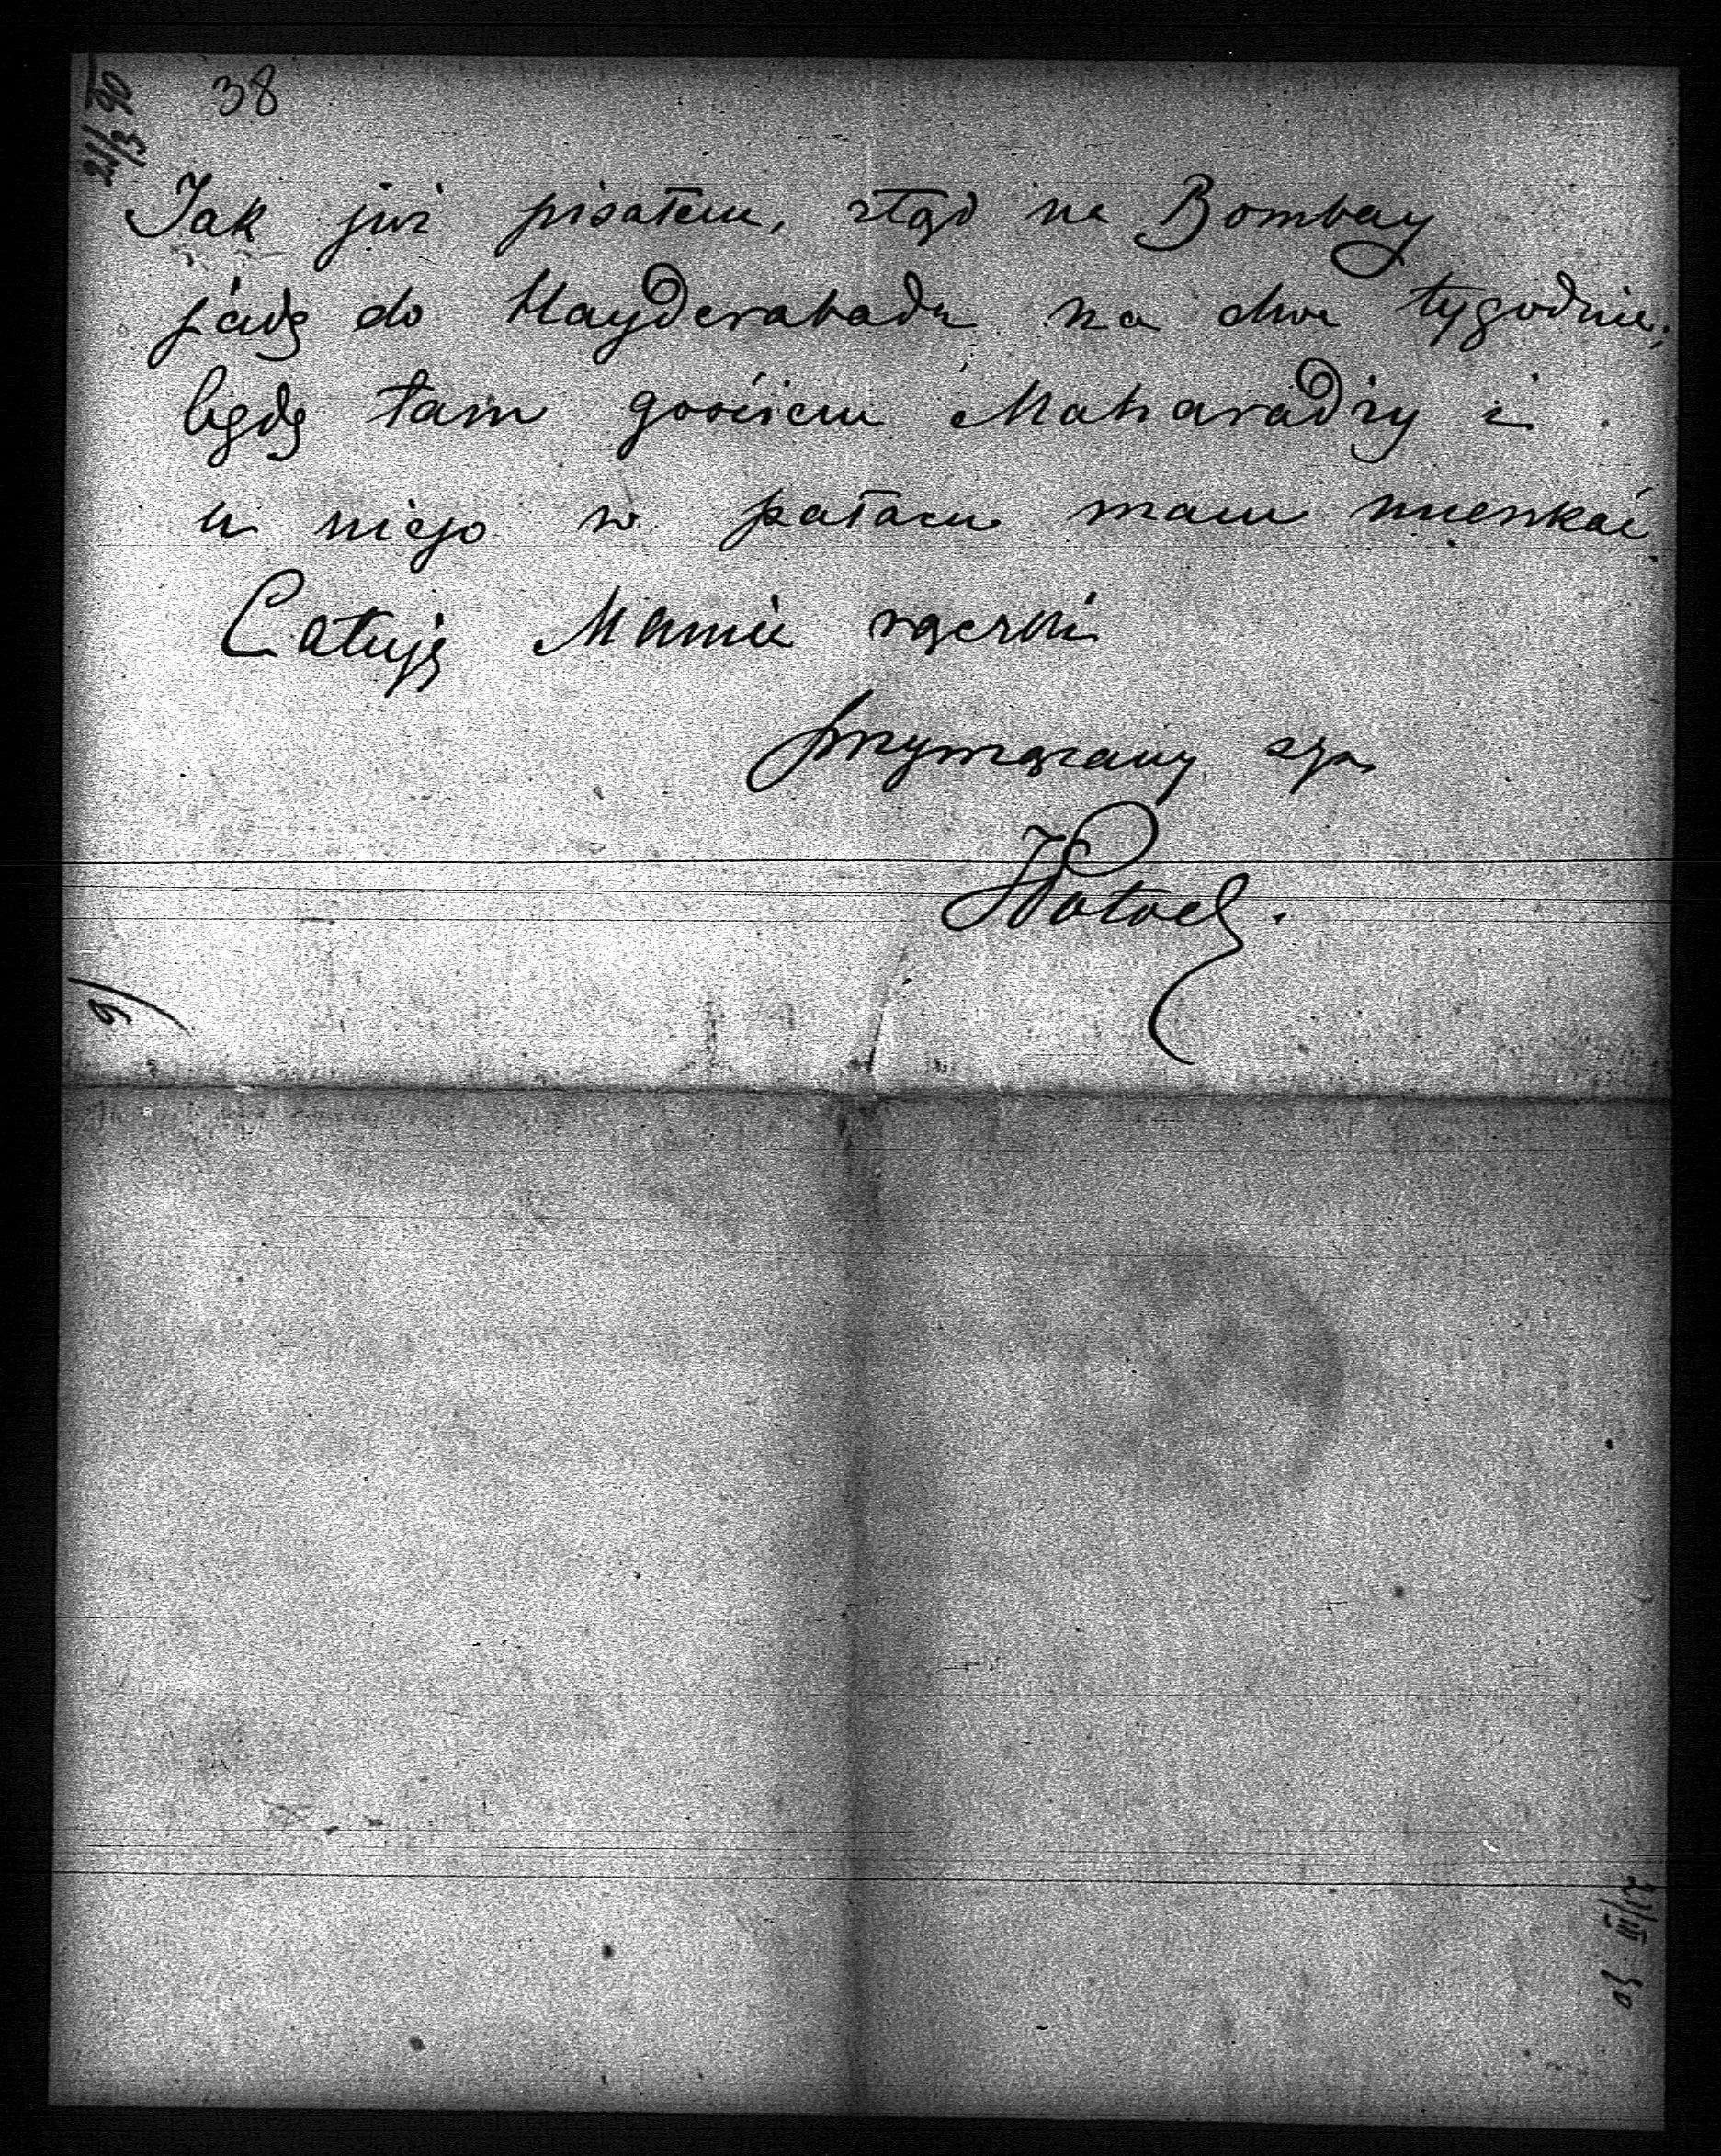 21/3 90
38
Jak już pisałem, ztąd na Bombay
jadę do Hayderabadu na dwa tygodnie;
będę tam gościem Maharadży i
u niego w pałacu mam mieszkać.
Całuję Mamie rączki
przywiązany syn
JPotocki.
9)
21/III 90